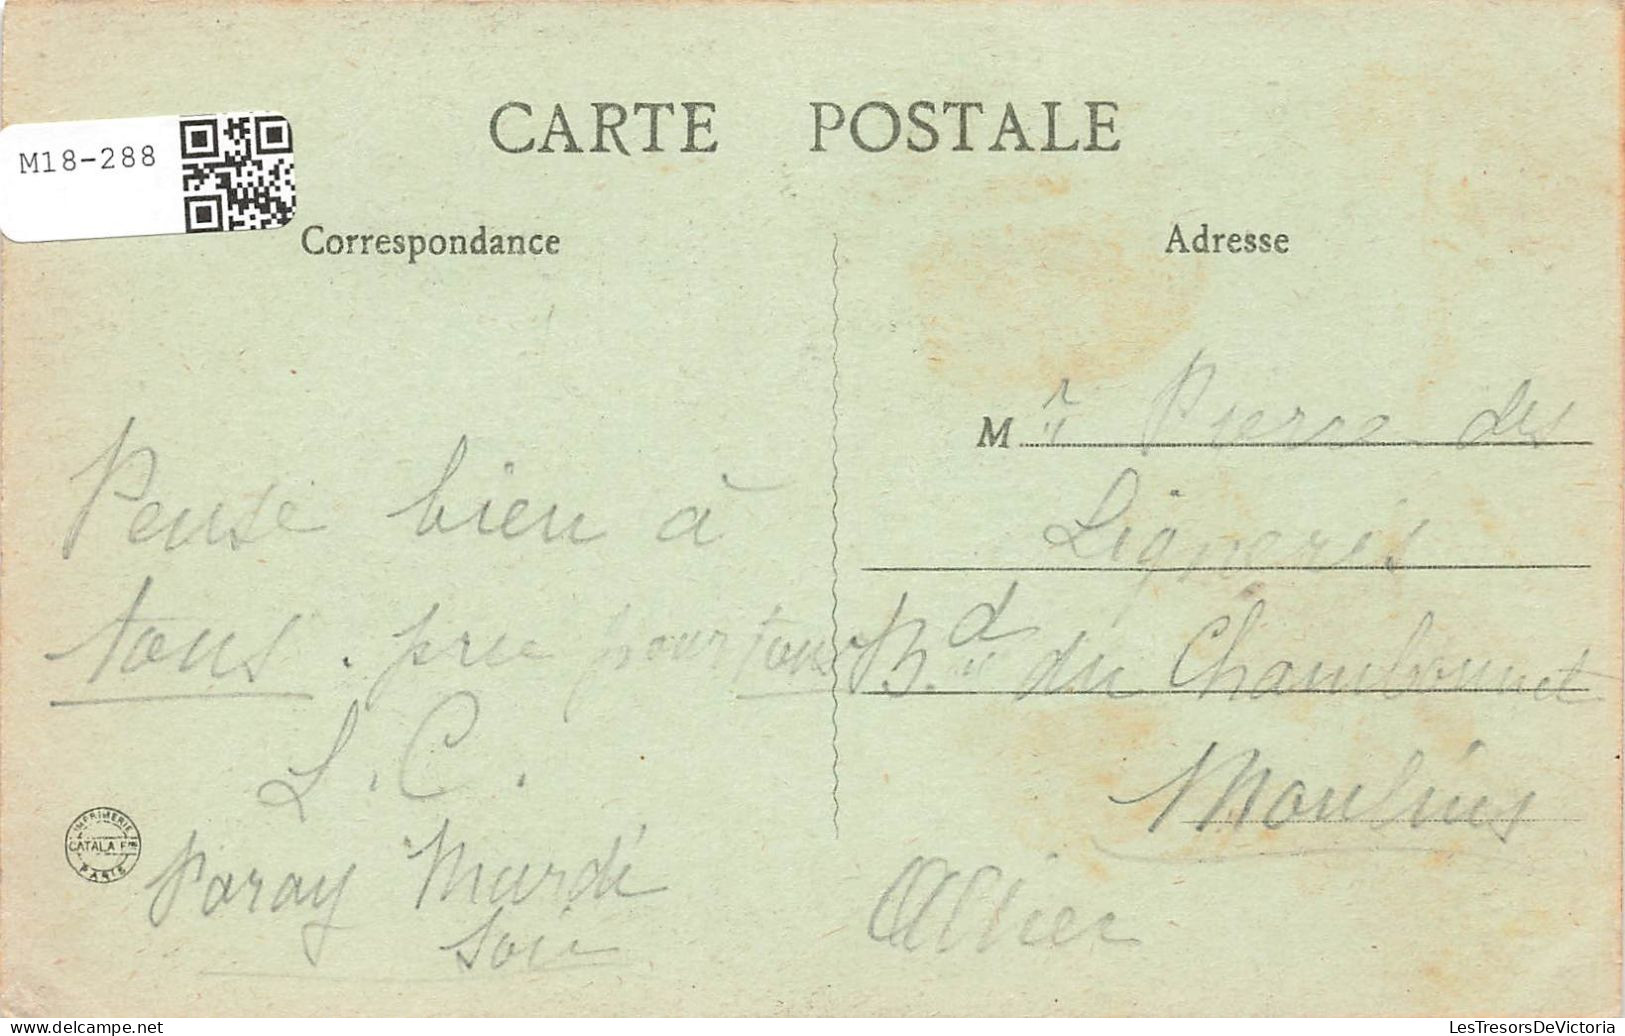 M18-288
CARTE POSTALE
Correspondance
Adresse
Mr Pierre des
Ligneris
Bd du Chambonnet
Moulins
Allier
Pense bien à
tous. prie pour tous
L. C.
Paray Mardi
soir
IMPRIMERIE
CATALA Fres
PARIS
LesTresorsDeVictoria